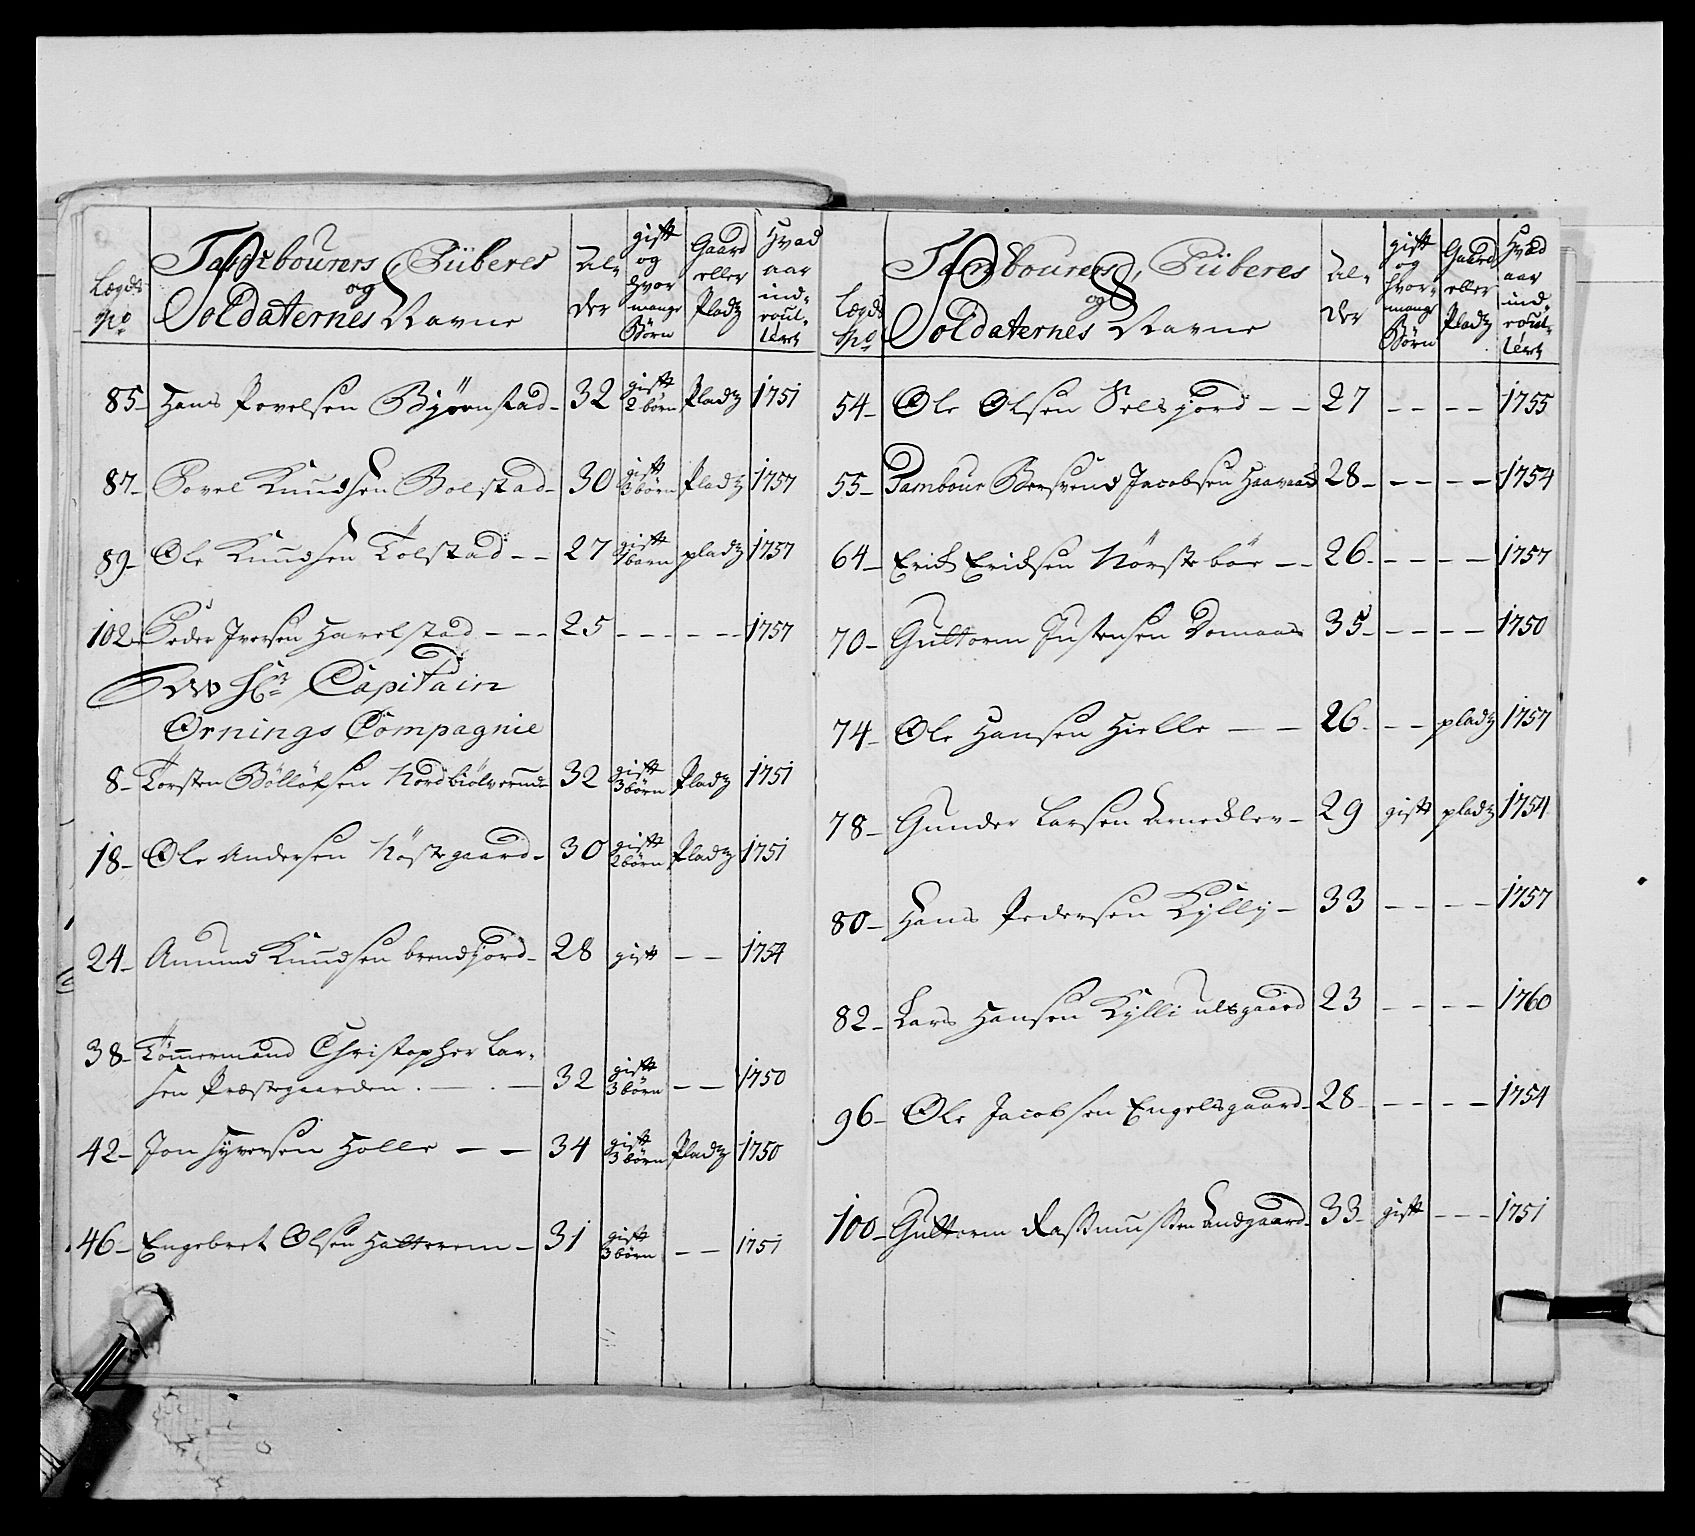 Lægds No
Tambourers, Piiberes
og
Soldaternes Navne
Al-
der
gift
og
hvor
mange
Børn
Gaard
eller
Pladz
Hvad
aar
ind-
roul-
leret
85 - Hans Povelsen Bjørnstad - 32 gift 2 børn Pladz 1751
87 - Povel Knudsen Bolstad - 30 gift 3 børn Pladz 1757
89 - Ole Knudsen Tolstad - - 27 gift 1 barn pladz 1757
102 - Peder Iversen Harelstad - - - 25 - - - - - 1757
Hr Capitain
Ornings Compagnie
8 - Torsten Bølløfsen Nordbiølverund 32 gift 3 børn Pladz 1751
18 - Ole Andersen Nøstegaard - 30 gift 2 børn Pladz 1751
24 - Amund Knudsen brendjord - 28 gift - - 1754
38 - Tømmermand Christopher Lar-
sen Præstegaarden . - . - 32 gift 3 børn - - 1750
42 - Jon Syversen Holle - - 34 gift 3 børn Pladz 1750
46 - Engebret Olsen Halterem - 31 gift 3 børn - - 1751
Lægds No
Tambourers, Piiberes
og
Soldaternes Navne
Al-
der
gift
og
hvor-
mange
Børn
Gaard
eller
Pladz
Hvad
aar
ind-
roul-
leret
54 - Ole Olsen Selsjord - - 27 - - - - 1755
55 - Tambour Bersvend Jacobsen Haavaad 28 - - - - - 1754
64 - Erich Erichsen Nørstebøe - - 26 - - - - - 1757
70 - Guttorm Justensen Domaas 35 - - - - - 1750
74 - Ole Hansen Hielle - - 26 - - - pladz 1757
78 - Gunder Larsen - 29 gift pladz 1754
80 - Hans Pedersen Kylly - 33 - - - - 1757
82 - Lars Hansen Kylli ulsgaard 23 - - - - 1760
96 - Ole Jacobsen Engelsgaard - 28 - - - - - 1754
100 - Guttorm Rassmussen Landgaard - 33 - gift - - - 1751